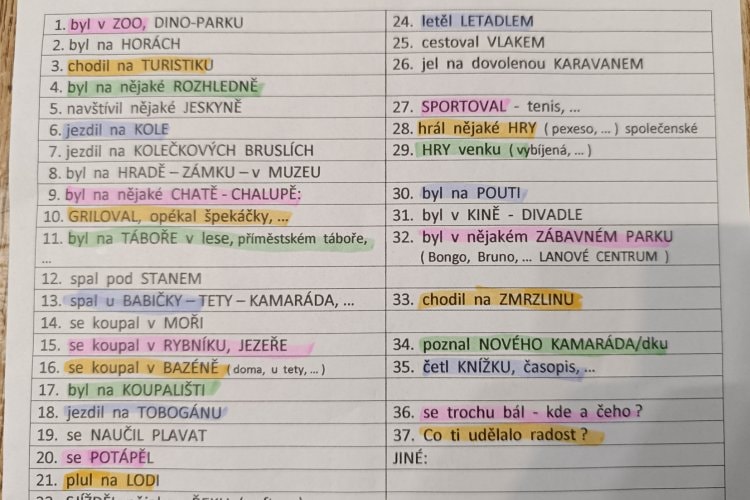 1. byl v ZOO, DINO-PARKU
2. byl na HORÁCH
3. chodil na TURISTIKU
4. byl na nějaké ROZHLEDNĚ
5. navštívil nějaké JESKYNĚ
6. jezdil na KOLE
7. jezdil na KOLEČKOVÝCH BRUSLÍCH
8. byl na HRADĚ – ZÁMKU – v MUZEU
9. byl na nějaké CHATĚ - CHALUPĚ:
10. GRILOVAL, opékal špekáčky, ...
11. byl na TÁBOŘE v lese, příměstském táboře,
...
12. spal pod STANEM
13. spal u BABIČKY – TETY - KAMARÁDA, ...
14. se koupal v MOŘI
15. se koupal v RYBNÍKU, JEZEŘE
16. se koupal v BAZÉNĚ (doma, u tety, ...)
17. byl na KOUPALIŠTI
18. jezdil na TOBOGÁNU
19. se NAUČIL PLAVAT
20. se POTÁPĚL
21. plul na LODI
24. letěl LETADLEM
25. cestoval VLAKEM
26. jel na dovolenou KARAVANEM
27. SPORTOVAL - tenis, ...
28. hrál nějaké HRY (pexeso, ...) společenské
29. HRY venku (vybíjená, ...)
30. byl na POUTI
31. byl v KINĚ - DIVADLE
32. byl v nějakém ZÁBAVNÉM PARKU
(Bongo, Bruno, ... LANOVÉ CENTRUM )
33. chodil na ZMRZLINU
34. poznal NOVÉHO KAMARÁDA/dku
35. četl KNÍŽKU, časopis, ...
36. se trochu bál - kde a čeho ?
37. Co ti udělalo radost ?
JINÉ: